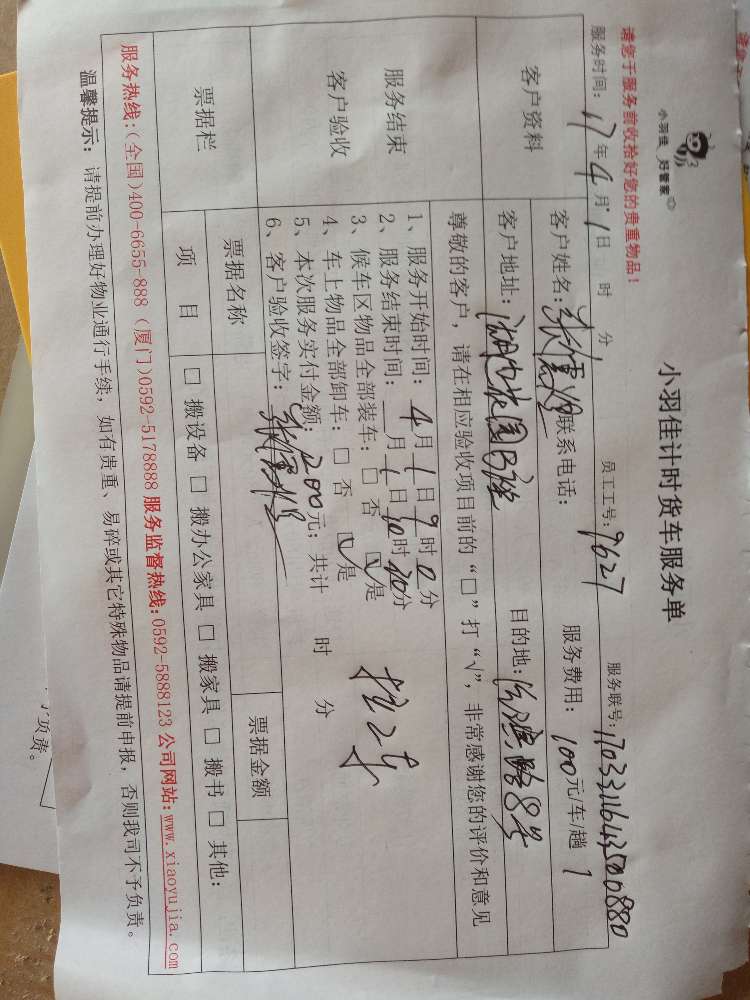 小羽佳 好管家
小羽佳计时货车服务单
请您于服务前收拾好您的贵重物品！
服务时间：17年4月1日 时 分 员工工号：9627 服务联号：1703311643500880
客户资料
客户姓名： 联系电话： 服务费用：100元/车/趟 1
客户地址：湖边花园B 目的地： 路8号
尊敬的客户，请在相应验收项目前的“□”打“√”，非常感谢您的评价和意见
服务结束
客户验收
1、服务开始时间：4月1日9时0分
2、服务结束时间： 月1日10时20分
3、候车区物品全部装车：□ 否 ☑是
4、车上物品全部卸车：□ 否 ☑是
5、本次服务实付金额：200元；共计 时 分
6、客户验收签字：
拉2车
票据栏
票据名称 票据金额
项 目 □ 搬设备 □ 搬办公家具 □ 搬家具 □ 搬书 □ 其他：
服务热线：(全国)400-6655-888 (厦门)0592-5178888 服务监督热线：0592-5888123 公司网站：www.xiaoyujia.com
温馨提示：请提前办理好物业通行手续，如有贵重、易碎或其它特殊物品请提前申报，否则我司不予负责。
负责。